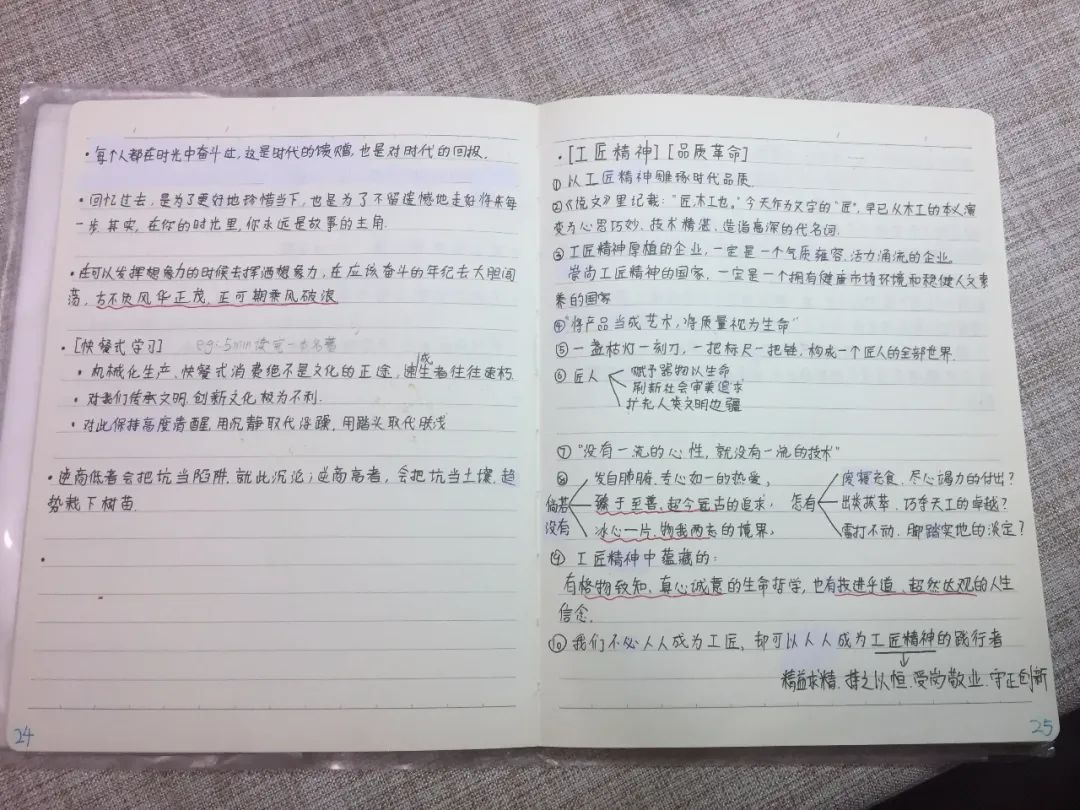 ·每个人都在时光中奋斗过,这是时代的馈赠,也是对时代的回报.
·回忆过去,是为了更好地珍惜当下,也是为了不留遗憾地走好将来每
一步.其实,在你的时光里,你永远是故事的主角.
·在可以发挥想象力的时候去挥洒想象力,在应该奋斗的年纪去大胆闯
荡,方不负风华正茂,正可期乘风破浪
·[快餐式学习] eg:5min读完一本名著
·机械化生产、快餐式消费绝不是文化的正途,速成者往往速朽.
·对我们传承文明、创新文化极为不利.
·对此保持高度清醒,用沉静取代浮躁,用踏实取代肤浅
·逆商低者会把坑当陷阱,就此沉沦;逆商高者,会把坑当土壤,趁
势栽下树苗.
24
·[工匠精神][品质革命]
①以工匠精神雕琢时代品质.
②《说文》里记载:"匠,木工也."今天作为文字的"匠",早已从木工的本义演
变为心思巧妙、技术精湛、造诣高深的代名词.
③工匠精神厚植的企业,一定是一个气质雍容、活力涌流的企业.
崇尚工匠精神的国家,一定是一个拥有健康市场环境和稳健人文素
养的国家
④"将产品当成艺术,将质量视为生命"
⑤一盏枯灯一刻刀,一把标尺一把锉,构成一个匠人的全部世界.
⑥匠人 赋予器物以生命
刷新社会审美追求
扩充人类文明边疆
⑦"没有一流的心性,就没有一流的技术"
⑧倘若没有 发自肺腑、专心如一的热爱, 怎有 废寝忘食、尽心竭力的付出?
臻于至善、超今冠古的追求, 出类拔萃、巧夺天工的卓越?
冰心一片、物我两忘的境界, 雷打不动、脚踏实地的淡定?
⑨工匠精神中蕴藏的:
有格物致知、真心诚意的生命哲学,也有技进乎道、超然达观的人生
信念.
⑩我们不必人人成为工匠,却可以人人成为工匠精神的践行者
精益求精、持之以恒、爱岗敬业、守正创新
25